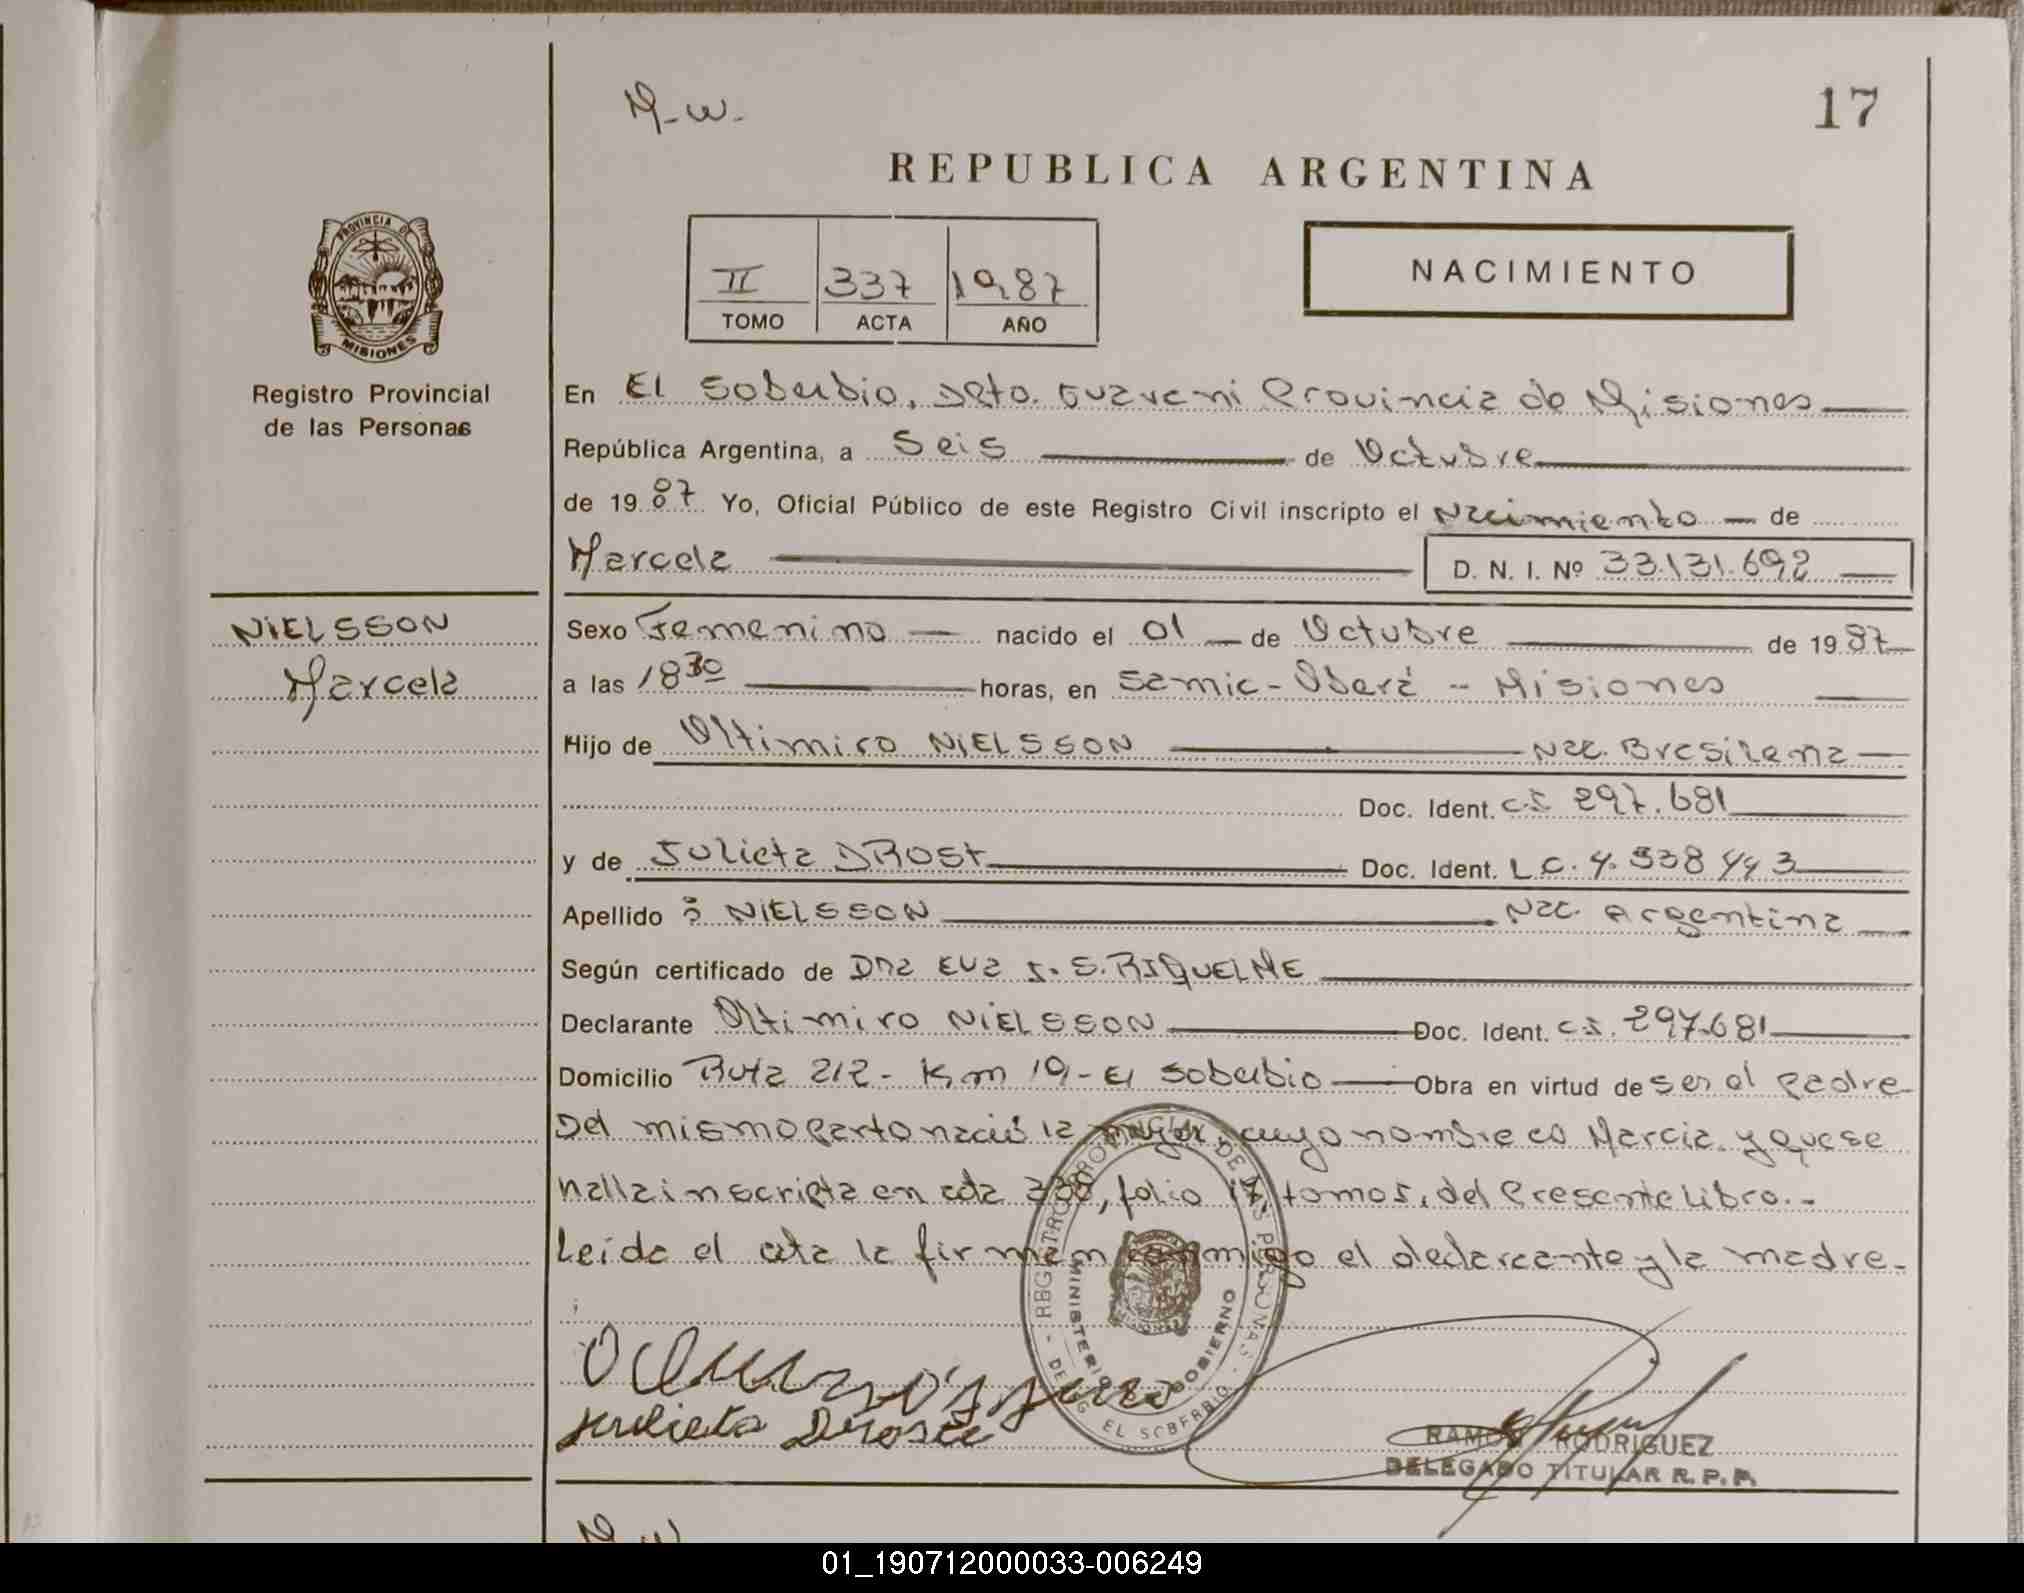 M-W-
17
REPUBLICA ARGENTINA
PROVINCIA DE
MISIONES
II 337 1987
TOMO ACTA AÑO
NACIMIENTO
Registro Provincial
de las Personas
En El Soberbio, Dpto. Guarani Provincia de Misiones
República Argentina, a Seis de Octubre
de 1987 Yo, Oficial Público de este Registro Civil inscripto el Nacimiento de
Marcela D. N. I. Nº 33.131.692
NIELSSON
Marcela
Sexo Femenino nacido el 01 de Octubre de 1987
a las 18 30 horas, en Samic - Oberá - Misiones
Hijo de Oltimiro NIELSSON Nac. Brasilena
Doc. Ident. C.I. 297.681
y de Julieta DROST Doc. Ident. L.C. 4.538443
Apellido : NIELSSON Nac. Argentina
Según certificado de Dra Eva I. S. RIQUELME
Declarante Oltimiro NIELSSON Doc. Ident. C.I. 297.681
Domicilio Ruta 212 - Km 19 - El Soberbio Obra en virtud de ser el padre
Del mismo parto nació la mujer, cuyo nombre es Marcia y que se
halla inscripta en acta 338, folio 17, tomo 2, del Presente Libro.-
Leida el acta la firman conmigo el declarante y la madre.-
REGISTRO PROVINCIAL DE LAS PERSONAS - DELEG. EL SOBERBIO -
MINISTERIO GOBIERNO
Julieta Drost
RAMON RODRIGUEZ
DELEGADO TITULAR R. P. P.
M-W
01_190712000033-006249